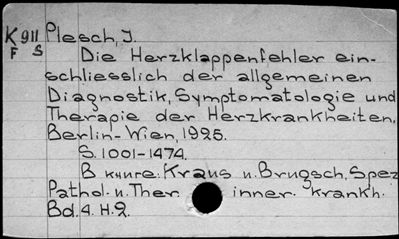 K 911 Plesch, J.
F S
Die Herzklappenfehler ein-
schliesslich der allgemeinen
Diagnostik, Symptomatologie und
Therapie der Herzkrankheiten.
Berlin-Wien, 1925.
S. 1001-1474.
В книге: Kraus u. Brugsch, Spez
Pathol. u. Ther. inner. Krankh.
Bd. 4. H. 2.